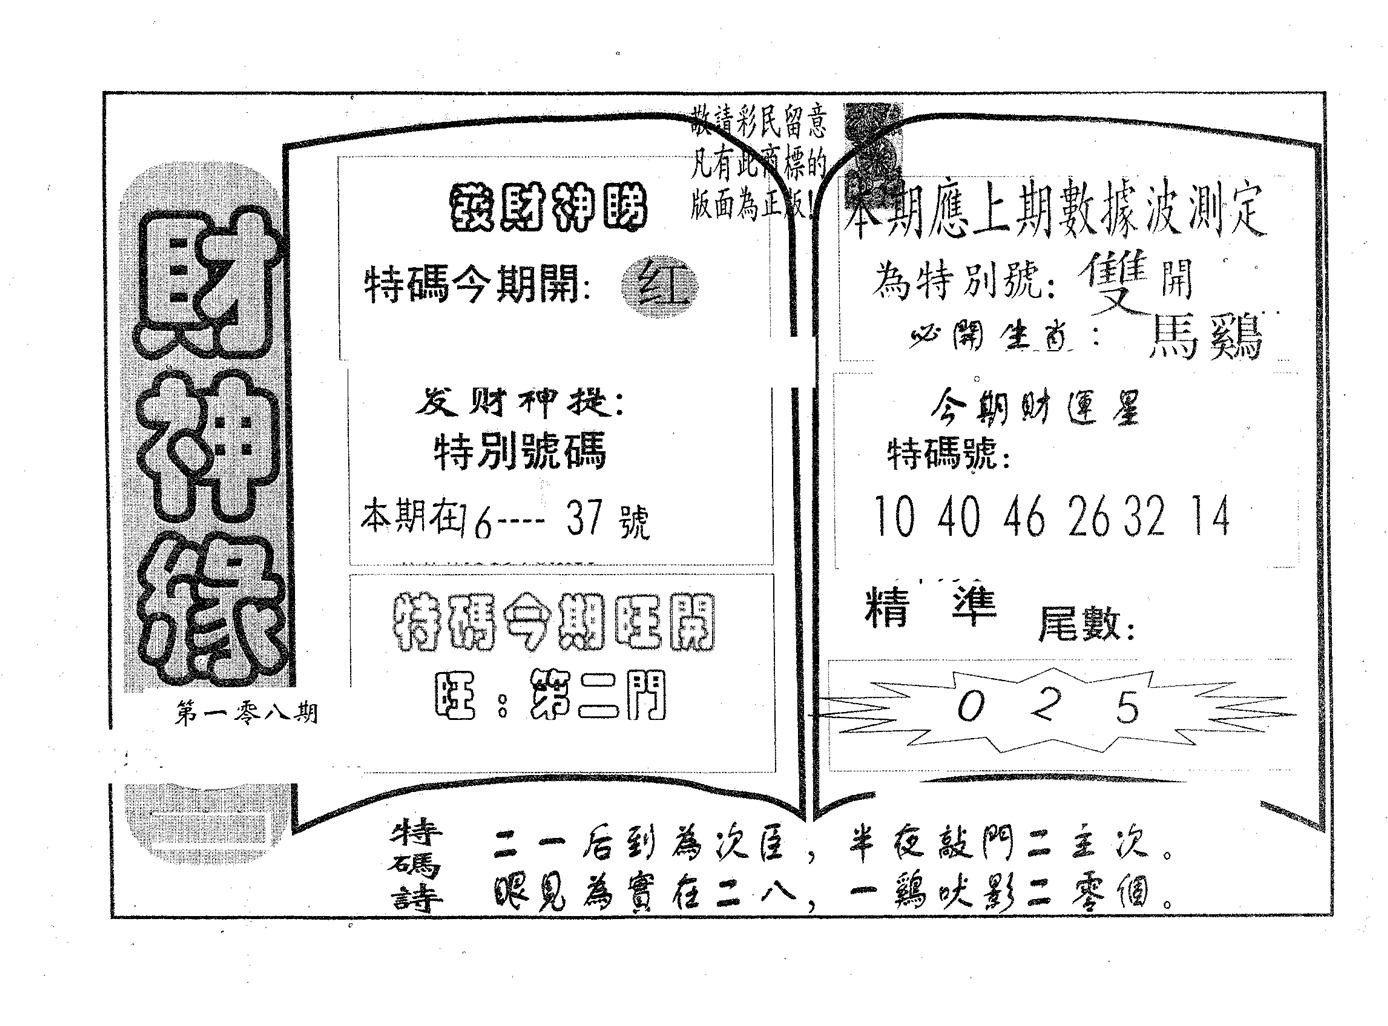 財神緣
第一零八期
敬請彩民留意
凡有此商標的
版面為正版!
發財神睇
特碼今期開: 红
发财神提:
特別號碼
本期在16---- 37 號
特碼今期旺開
旺:第二門
本期應上期數據波測定
為特別號: 雙 開
必開生肖: 馬鷄
今期財運星
特碼號:
10 40 46 26 32 14
精 準 尾數:
0 2 5
特碼詩
二一后到為次臣,半夜敲門二主次。
眼見為實在二八,一鷄吠影二零個。